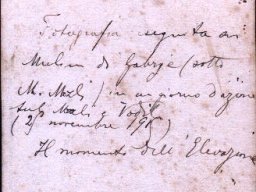 Fotografia eseguita ai
Mulini di Gabrje (sotto
M. Mrzli) in un giorno d'azione
sul Mrzli e Vodil
(2 novembre 191
Il momento dell'Elevazione